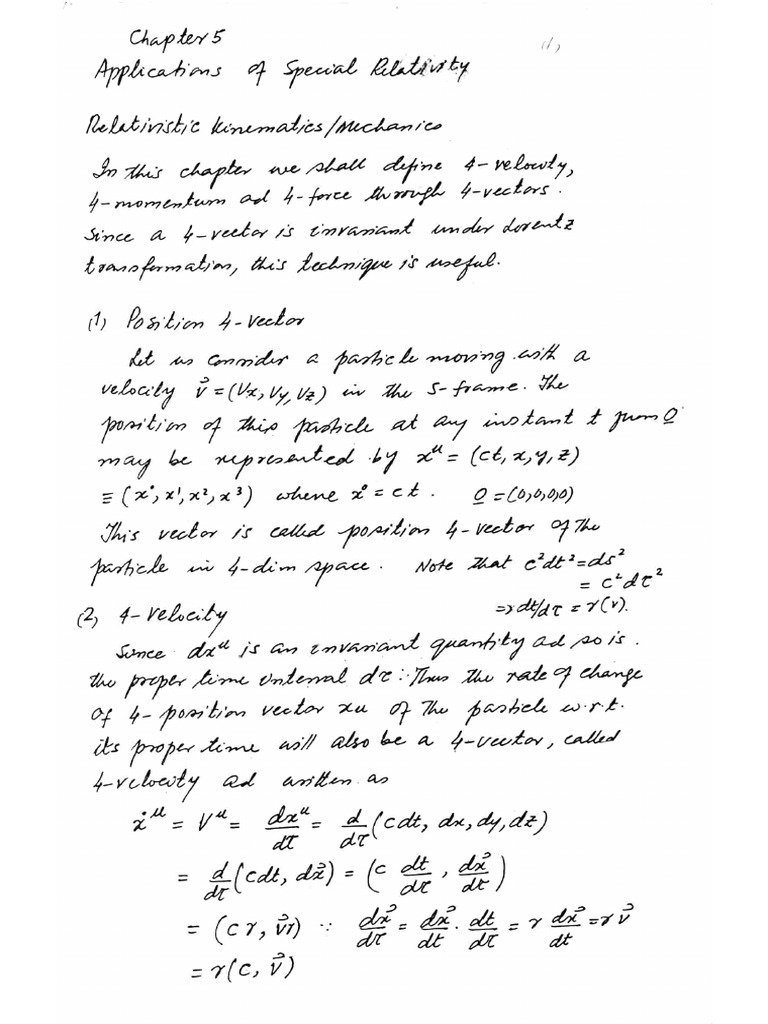 Chapter 5
(1)
Applications of Special Relativity
Relativistic Kinematics/Mechanics
In this chapter we shall define 4-velocity,
4-momentum ad 4-force through 4-vectors.
Since a 4-vector is invariant under Lorentz
transformation, this technique is useful.
(1) Position 4-vector
Let us consider a particle moving with a
velocity v⃗ = (Vx, Vy, Vz) in the S-frame. The
position of this particle at any instant t from O
may be represented by xᵘ = (ct, x, y, z)
≡ (x⁰, x¹, x², x³) where x⁰ = ct. O = (0,0,0,0)
This vector is called position 4-vector of the
particle in 4-dim space. Note that c²dt² = ds²
= c²dτ²
⇒ dt/dτ = γ(v).
(2) 4-velocity
Since dxᵘ is an invariant quantity ad so is
the proper time interval dτ. Thus the rate of change
of 4-position vector xu of the particle w.r.t.
its proper time will also be a 4-vector, called
4-velocity ad written as
ẋᵘ = Vᵘ = dxᵘ/dτ = d/dτ (cdt, dx, dy, dz)
= d/dτ (cdt, dx⃗) = (c dt/dτ, dx⃗/dτ)
= (cγ, v⃗γ) ∵ dx⃗/dτ = dx⃗/dt · dt/dτ = γ dx⃗/dt = γv⃗
= γ(c, v⃗)